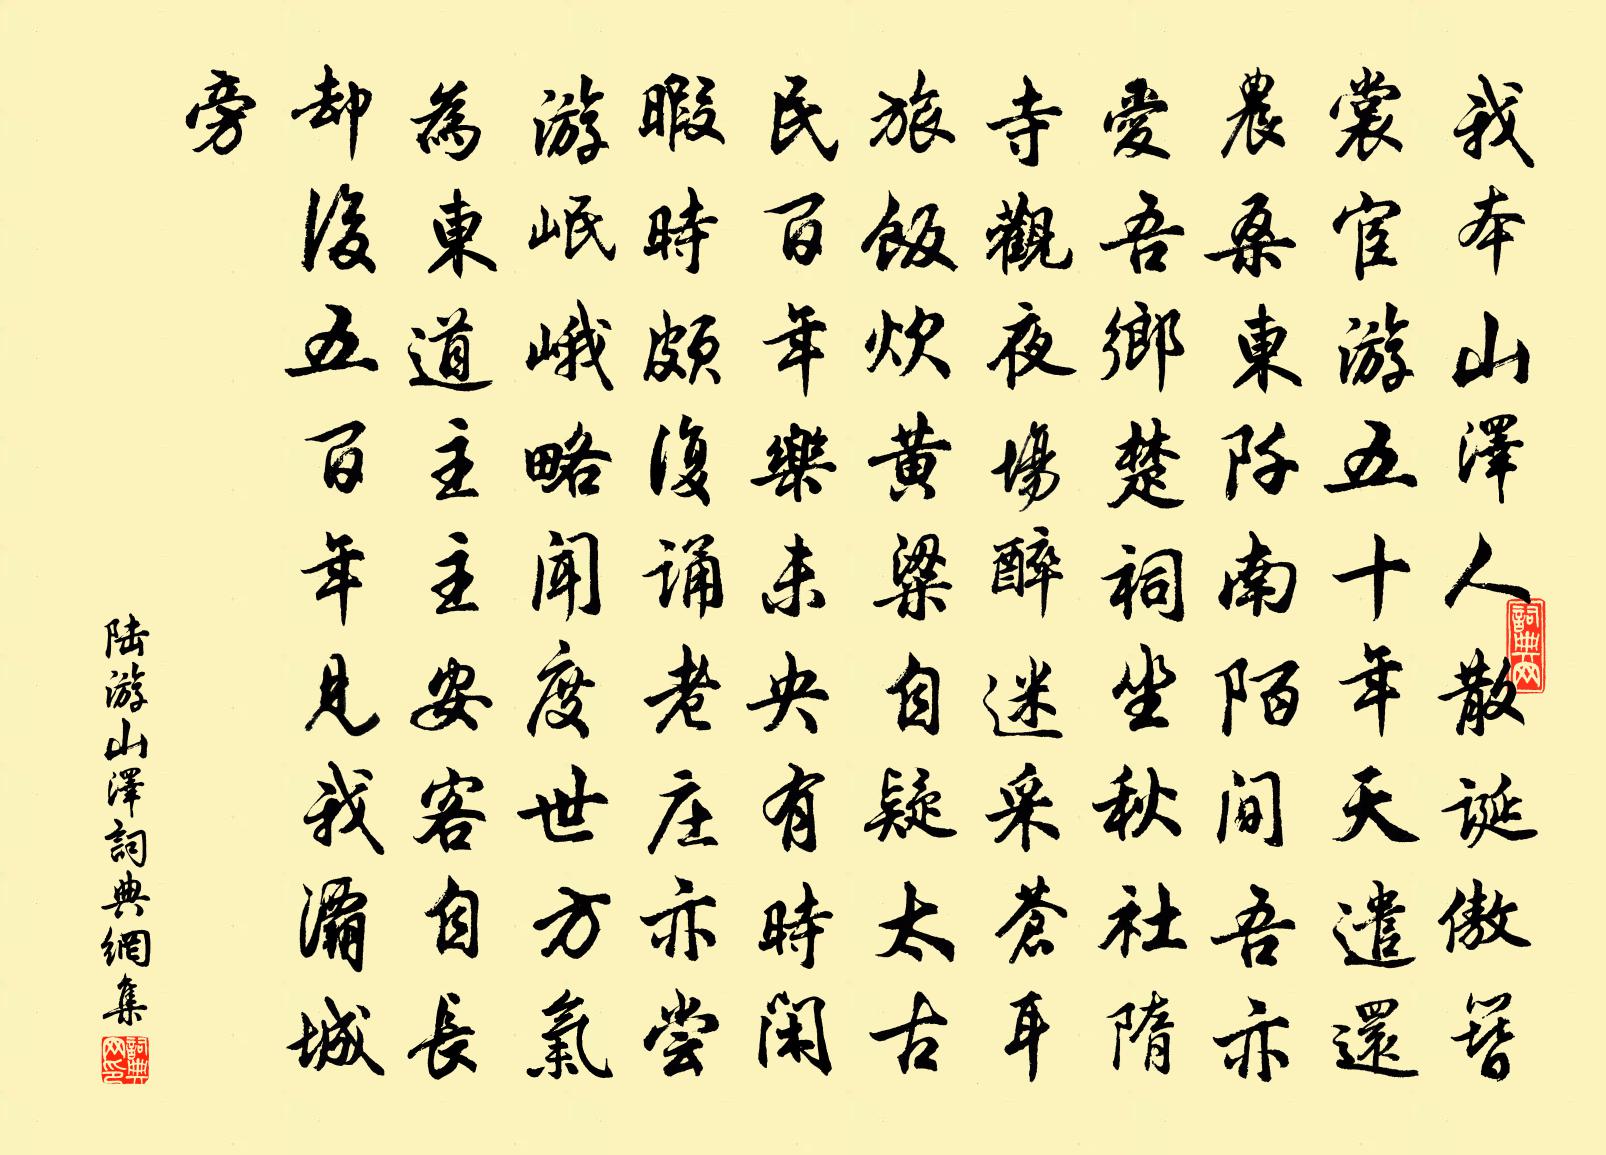 我本山澤人散誕傲簪
裳宦游五十年天遣還
農桑東阡南陌間吾亦
愛吾鄉楚祠坐秋社隋
寺觀夜場醉迷采蒼耳
旅飯炊黄粱自疑太古
民百年樂未央有時閑
暇時頗復誦老庄亦尝
游岷峨略闻度世方氣
為東道主主安客自長
却後五百年見我灞城
旁
陆游山澤詞典網集
詞典网
詞典网印